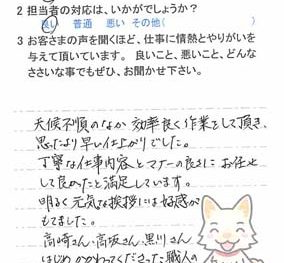 2 担当者の対応は、いかがでしょうか?
良い 普通 悪い その他( )
3 お客さまの声を聞くほど、仕事に情熱とやりがいを
与えて頂いています。 良いこと、悪いこと、どんな
ささいな事でもぜひ、お聞かせ下さい。
天候不順のなか 効率良く作業をして頂き、
思ったより早い仕上がりでした。
丁寧な仕事内容とマナーの良さに お任せ
して良かったと満足しています。
明るく元気な挨拶には好感が
もてました。
高崎さん、高坂さん、黒川さん
はじめ かかわってくださった職人の